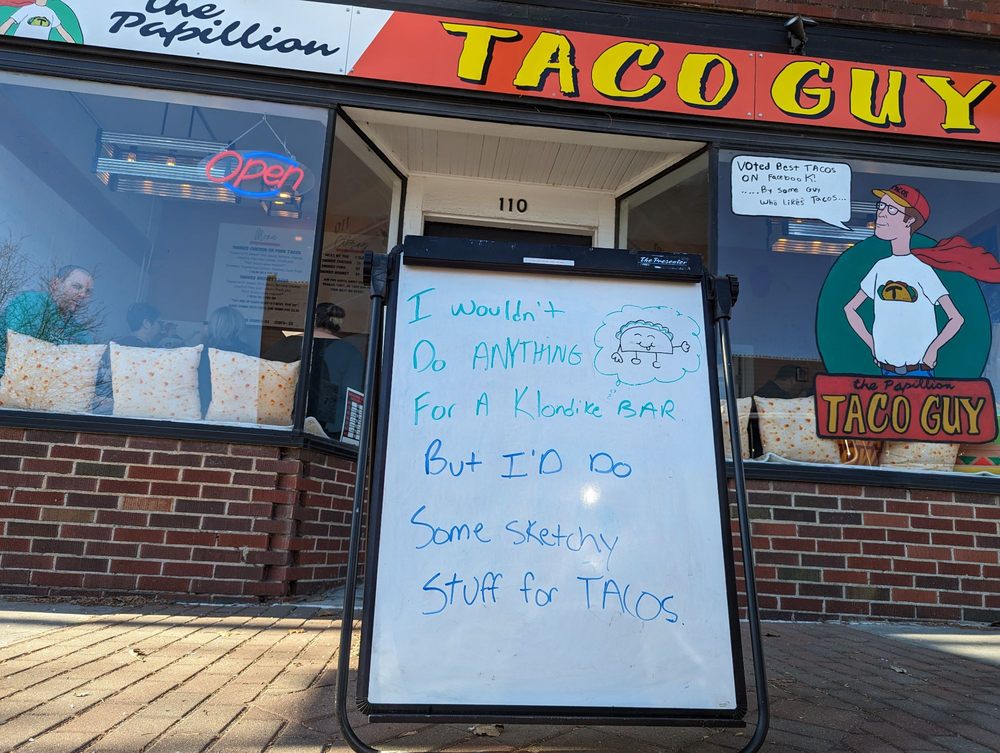 the
Papillion
TACO GUY
Open
110
VOTED BEST TACOS
ON FACEBOOK!
.....By some guy
who likes Tacos...
TACOS
T
the Papillion
TACO GUY
Menu
The Presenter
I wouldn't
Do ANYTHING
For A Klondike BAR.
But I'D Do
Some sketchy
Stuff for TACOS.